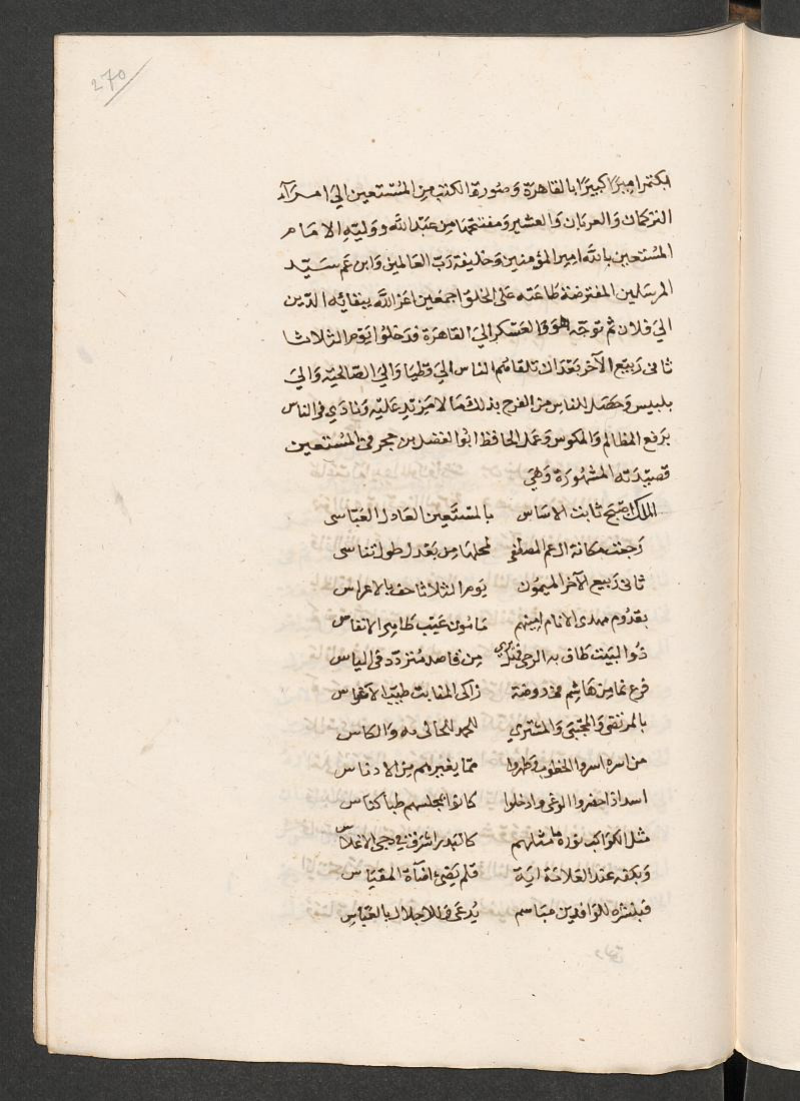 270
بكتمر اميرًا كبيرًا بالقاهرة وصورة الكتب من المستعين الي امرآء
التركمان والعربان والعشير ومفتتحها من عبد الله ووليه الامام
المستعين بالله امير المؤمنين وخليفة رب العالمين وابن عم سيد
المرسلين المفترضة طاعته على الخلق اجمعين اعز الله ببقائه الدين
الي فلان ثم توجه هو والعسكر الي القاهرة فدخلوا يوم الثلاثا
ثاني ربيع الآخر بعد ان تلقاهم الناس الي قطيا والي الصالحيه والي
بلبيس وحصل للناس من الفرح بذلك ما لا مزيد عليه ونادي في الناس
برفع المظالم والمكوس وعمل الحافظ ابو الفضل بن حجر في المستعين
قصيدته المشهورة وهي
الملك اصبح ثابت الاساس بالمستعين العادل العباسى
رجعت مكانة ال عم المصطفي لمحلها من بعد طول تناسى
ثاني ربيع الآخر الميمون يوم الثلاثا حف بالاعراس
بقدوم مهدى الانام امينهم مامون عيب طاهر الانفاس
ذوا البيت طاف به الرجى فهل يري من قاصد متردد في الياس
فرع نما من هاشم في روضة زاكى المنابت طيب الاغراس
بالمرتضى والمجتبى والمشتري للحمد الحالى به والكاس
من اسره اسروا الخطوب وطهروا مما يغيرهم من الادناس
اسد اذا حضروا الوغى واذا خلوا كانوا بمجلسهم ظبا كناس
مثل الكواكب نوره ما مثلهم كالبدر اشرق في دجى الاغلاس
وبكفه عند العلامة اية قلم يضيء اضآة المقباس
فبشره للوافدين مباسم يدعى في للاجلال بالعباس